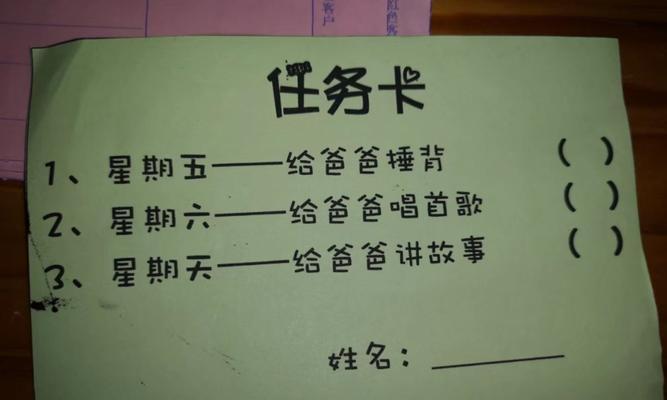 客户
红色客
任务卡
1、星期五——给爸爸捶背 ( )
2、星期六——给爸爸唱首歌 ( )
3、星期天——给爸爸讲故事 ( )
姓名：________